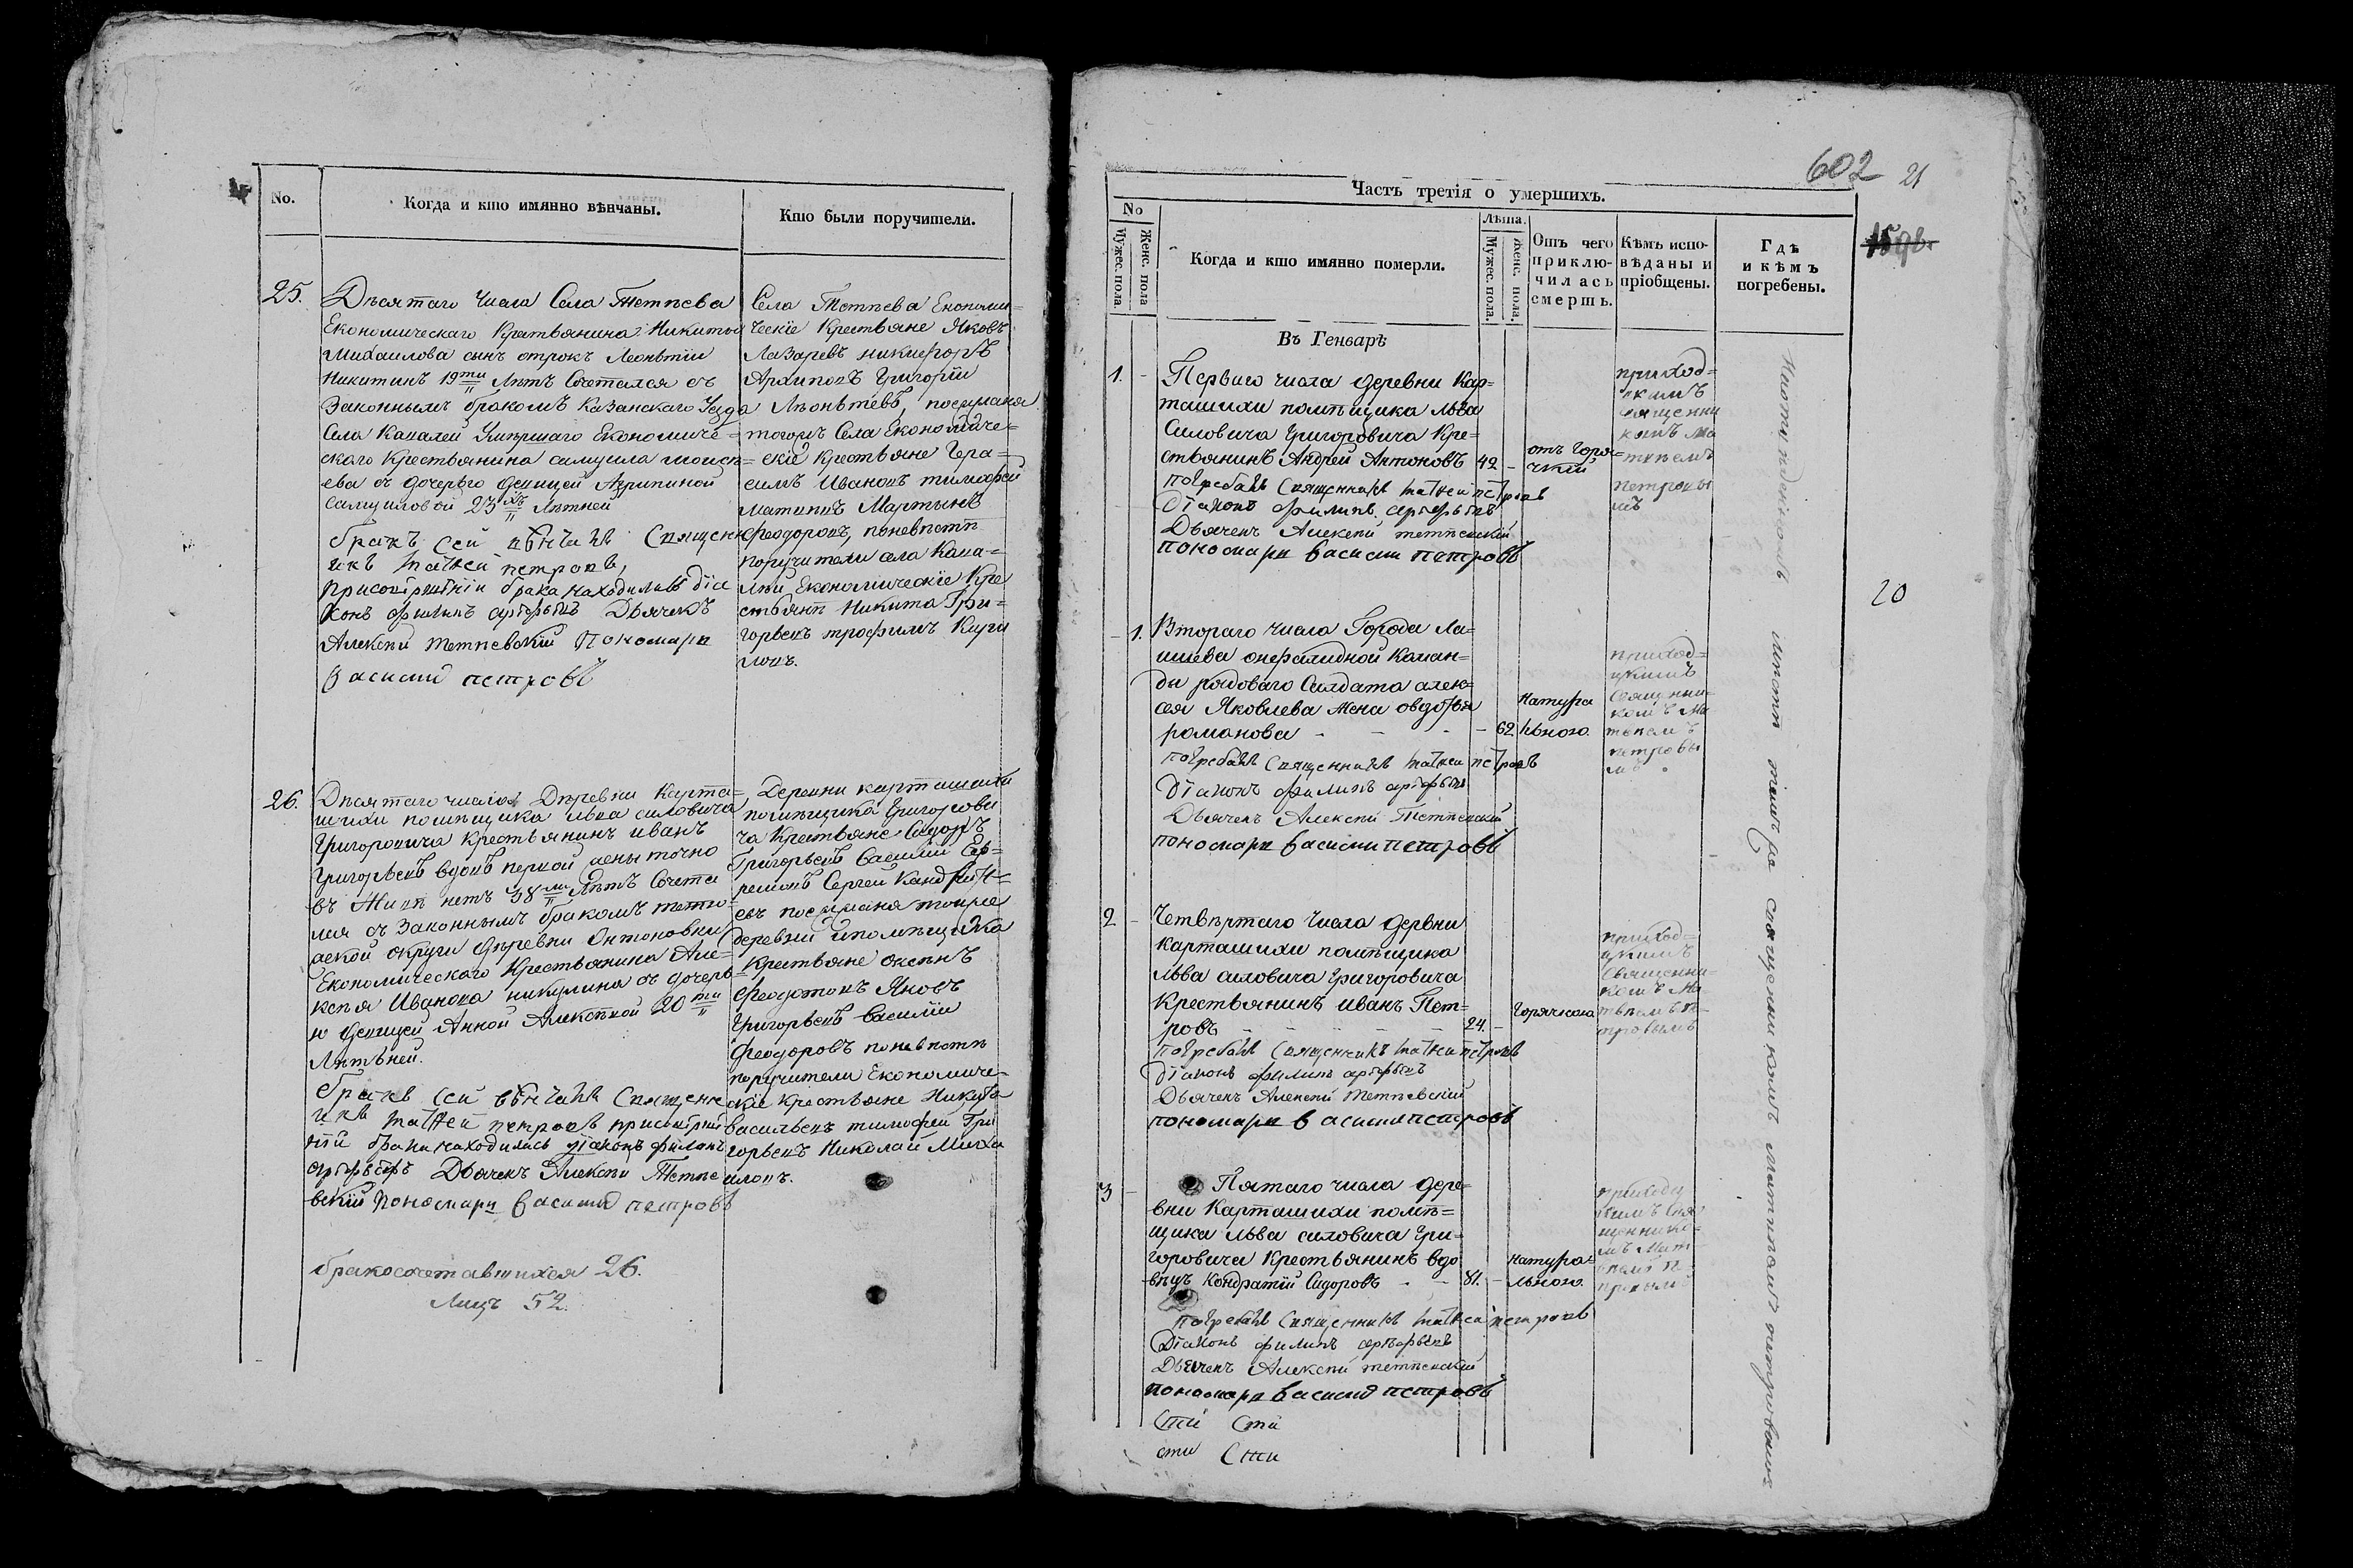 No.
Когда и кто имянно вѣнчаны.
Кто были поручители.
25.
Десятаго числа Села Тетѣева
Економическаго Крестьянина Никиты
Михаилова сынъ отрокъ Леонътии
Никитинъ 19ти лѣтъ Сочетался съ
Законнымъ бракомъ Казанскаго Уезда
Села Кабалей Умершаго Економиче=
скаго Крестьянина самуила моисѣ=
ева съ дочерью девицей Агрипиной
Самуиловой 23 Лѣтней
бракъ сей вѣнчалъ Священн
икъ Матѳей петровъ,
находились діа
конъ филипъ Дьячекъ
Алексѣй Тетѣевскій Пономарь
василий петровъ
Села Тетѣева Економи=
ческіе Крестьяне Яковъ
Лазаревъ никифоръ
Архиповъ Григорій
Лѣонътевъ, посемжена
тогожъ Села Економиче=
скіе Крестьяне Гера=
симъ Ивановъ тимофей
Мартынъ
Феодоровъ, поневѣстѣ
поручители села Каба=
лѣй Економическіе Кре
стьянѣ Никита Гри=
горьевъ трофимъ Кири
ловъ.
26.
Десятаго числа Деревни Карта=
шихи помѣщика лва силовича
Григоровича Крестьянинъ иванъ
Григорьевъ вдовъ первой жены точно
въ Живѣ нетъ 38 Лѣтъ Сочета
лся съ Законнымъ бракомъ тетю=
шской округи деревни Антоновки
Економическаго Крестьянина Але=
ксѣя Иванова никулина съ дочерь=
ю девицей Анной Алексѣвой 20ти
Лѣтьней.
бракъ сей вѣнчалъ Священн
икъ Матѳей петровъ
ніи брака находились діаконъ филипъ
Дьячекъ Алексѣй Тетѣе
вскій Пономарь василий петровъ
Деревни карташихи
помѣщика Григорови
ча Крестьяне Сидоръ
Григорьевъ василий
Сергей Кандратъ=
евъ тоиже
деревни ипомѣщика
Крестьяне
Феодотовъ Яковъ
Григорьевъ василий
Феодоровъ поневѣстѣ
поручители Економиче=
скіе крестьяне Никита
Васильевъ тимофей Гри
горьевъ Николай Миха
иловъ.
бракосочетавшихся 26.
Лицъ 52.
602 21
Часть третія о умершихъ.
No
Мужес. пола
Женс. пола
Когда и кто имянно померли.
Лѣта.
Мужес. пола.
Женс. пола.
Отъ чего
приклю-
чилась
смерть.
Кѣмъ испо-
вѣданы и
пріобщены.
Гдѣ
и кѣмъ
погребены.
20
Въ Генварѣ
1. -
Перваго числа деревни Кар=
ташихи помѣщика льва
Силовича Григоровича Кре=
стьянинъ Андрей Антоновъ 42 -
отъ Горя=
чкий
приход=
скимъ
священни
комъ Ма
твѣемъ
петровы
мъ
погребалъ Священникъ Матѳей петровъ
Діаконъ филипъ
Дьячекъ Алексѣй тетѣевский
пономарь василий петровъ
- 1.
Втораго числа Города Ла=
ишева Коман=
ды рядоваго Салдата алек=
сея Яковлева Жена овдотья
романова - - - - 62
Натура
льного.
приход=
скимъ
Священни=
комъ Ма
твѣемъ
петровы
мъ.
погребалъ Священникъ Матѳей петровъ
Діаконъ филипъ
Дьячекъ Алексѣй Тетѣевский
пономарь василий петровъ
2 -
Четвѣртаго числа деревни
карташихи помѣщика
Льва силовича Григоровича
Крестьянинъ иванъ Пет=
ровъ 24. -
Горячкою
приход=
скимъ
Священни=
комъ Ма=
твѣемъ пе=
тровымъ
погребалъ Священникъ Матѳей петровъ
Діаконъ филипъ
Дьячекъ Алексѣй Тетѣевский
пономарь василий петровъ
3 -
Пятаго числа дере=
вни Карташихи помѣ=
щика льва силовича Гри=
горовича Крестьянинъ вдо
вѣцъ Кондратій Сидоровъ - - 81. -
натура=
льного.
погребалъ Священникъ Матѳей петровъ
Діаконъ филипъ
Дьячекъ Алексѣй тетѣевский
пономарь василий петровъ
священникомъ